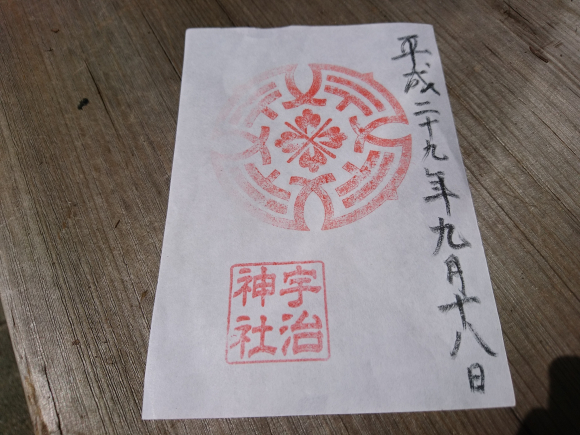 平成二十九年九月十八日
宇治
神社